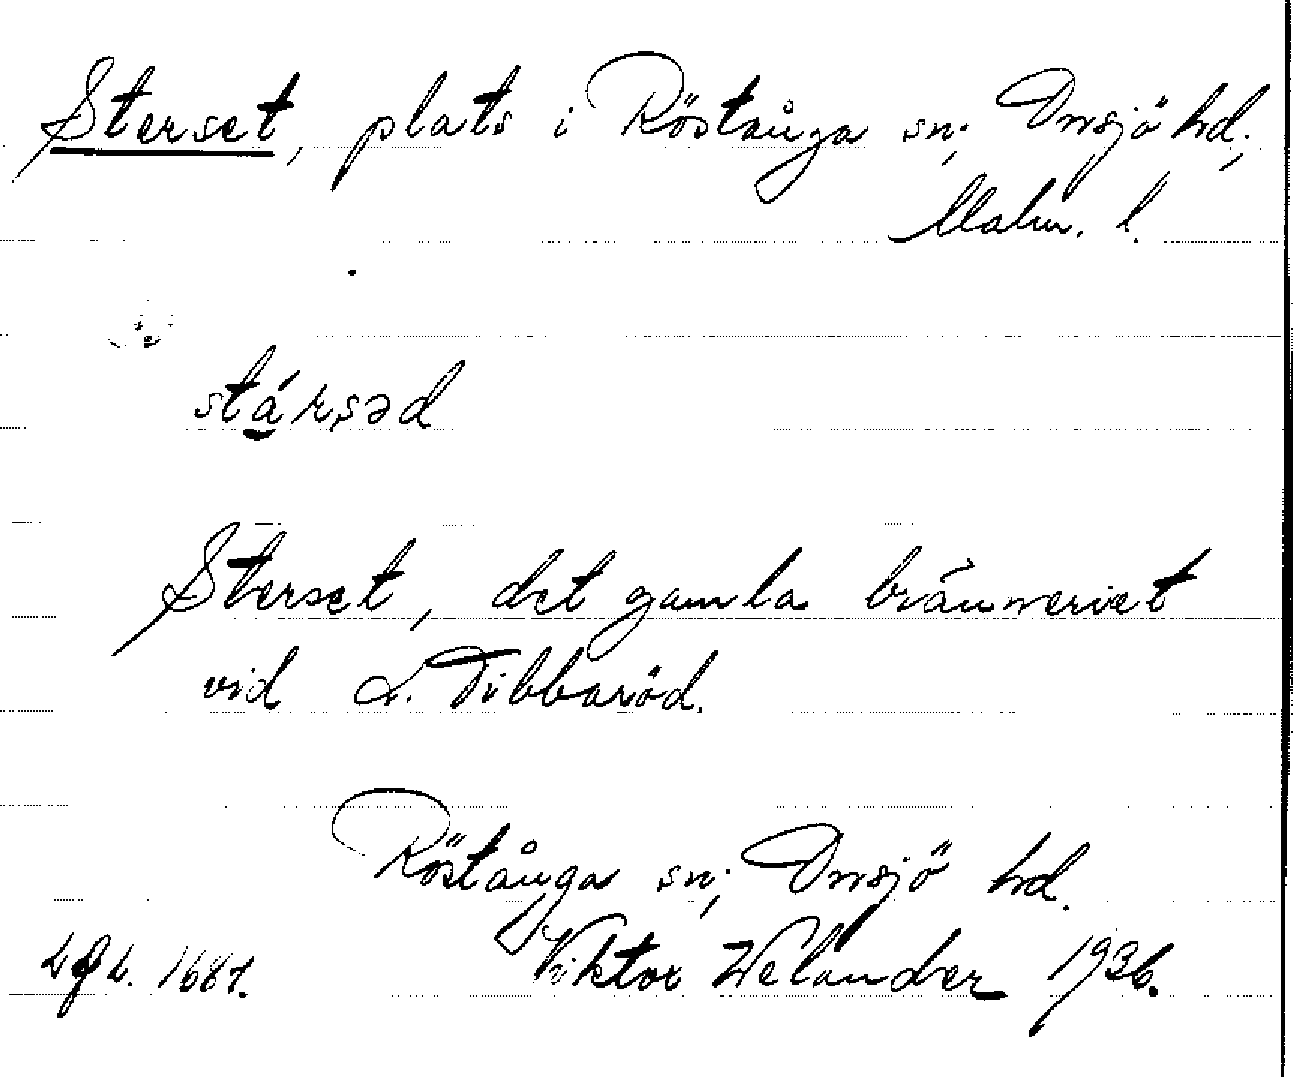 Sterset, plats i Röstånga sn; Onsjö hd;
Malm. l.
stársəd
Sterset, det gamla bränneriet
vid L. Tibbaröd.
Röstånga sn; Onsjö hd.
Viktor Welander 1936.
1687.